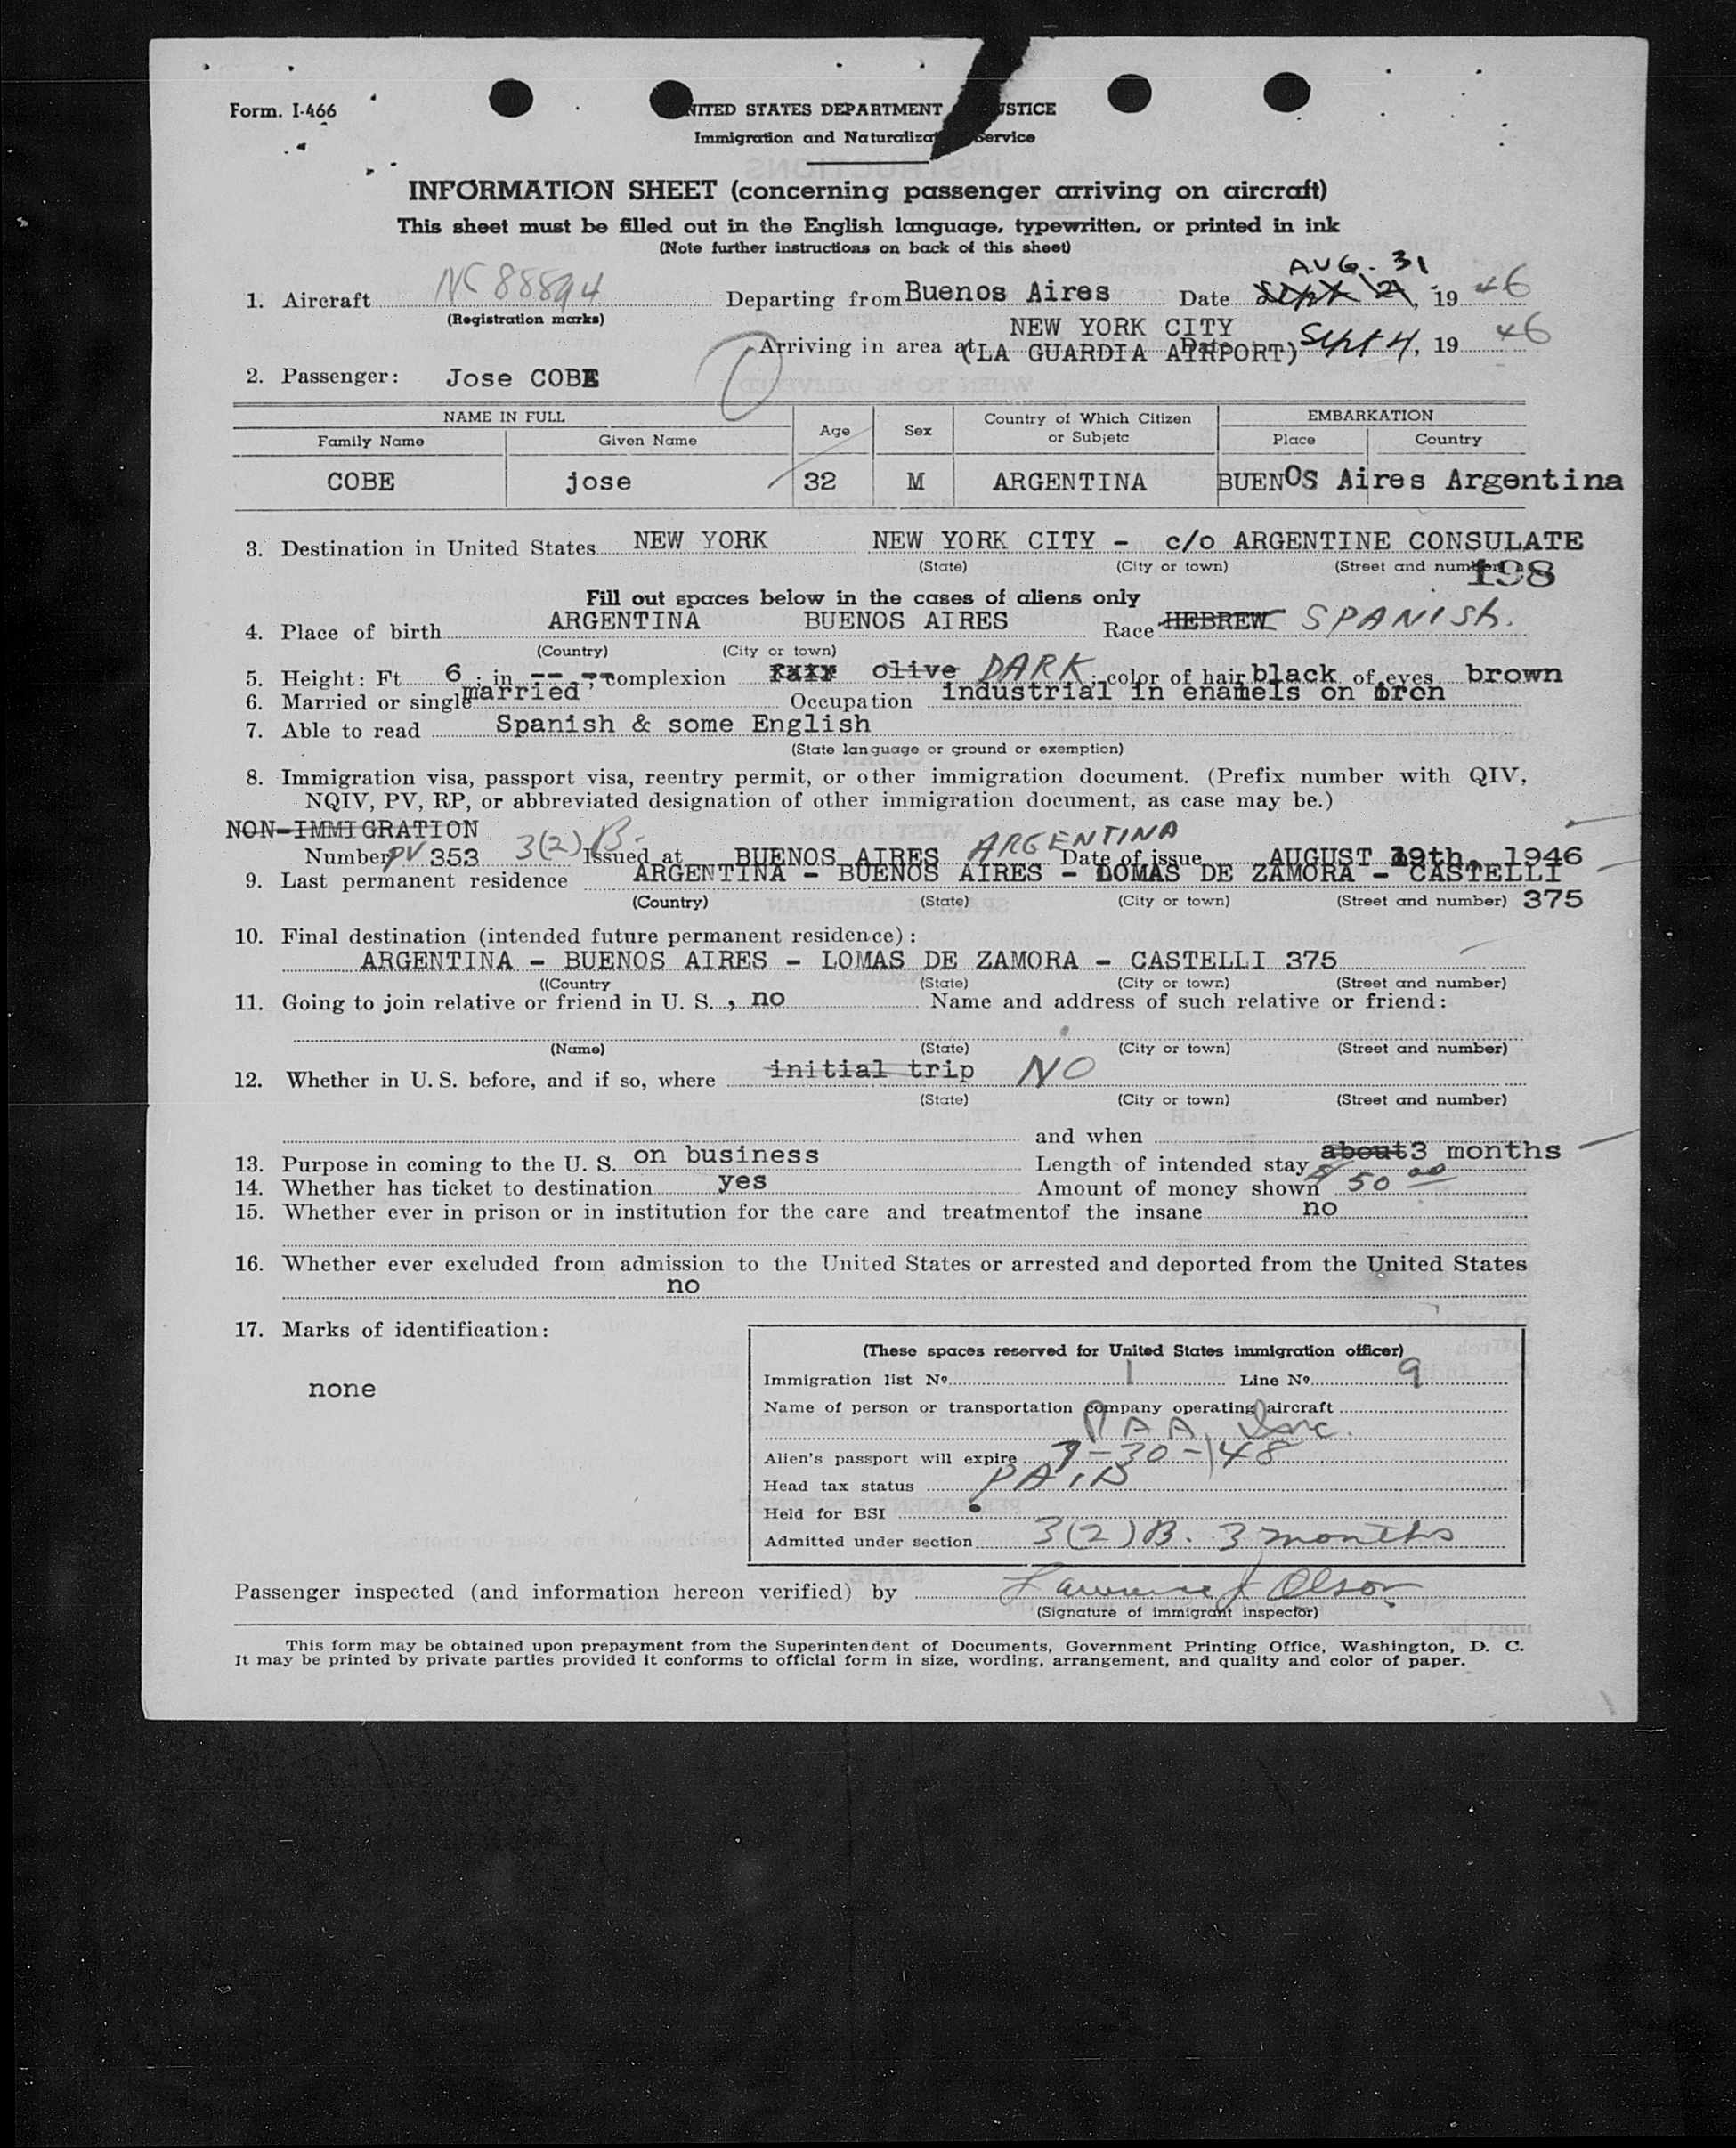 Form. I-466
NITED STATES DEPARTMENT STICE
Immigration and Naturaliza Service
INFORMATION SHEET (concerning passenger arriving on aircraft)
This sheet must be filled out in the English language, typewritten, or printed in ink
(Note further instructions on back of this sheet)
AUG. 31
1. Aircraft NC 88894 Departing from Buenos Aires Date Sept 2, 19 46
(Registration marks)
NEW YORK CITY
Arriving in area at (LA GUARDIA AIRPORT) Date Sept 4, 19 46
2. Passenger: Jose COBE
NAME IN FULL Age Sex Country of Which Citizen or Subjetc EMBARKATION
Family Name Given Name Place Country
COBE jose 32 M ARGENTINA BUENOS Aires Argentina
3. Destination in United States NEW YORK NEW YORK CITY - c/o ARGENTINE CONSULATE
(State) (City or town) (Street and number)
198
Fill out spaces below in the cases of aliens only
4. Place of birth ARGENTINA BUENOS AIRES Race HEBREW SPANISH.
(Country) (City or town)
5. Height: Ft 6 ; in -- -- complexion fair olive DARK ; color of hair black of eyes brown
6. Married or single married Occupation industrial in enamels on iron
7. Able to read Spanish & some English
(State language or ground or exemption)
8. Immigration visa, passport visa, reentry permit, or other immigration document. (Prefix number with QIV,
NQIV, PV, RP, or abbreviated designation of other immigration document, as case may be.)
NON-IMMIGRATION
Number PV 353 3(2) B. Issued at BUENOS AIRES ARGENTINA Date of issue AUGUST 19th, 1946
9. Last permanent residence ARGENTINA - BUENOS AIRES - LOMAS DE ZAMORA - CASTELLI
(Country) (State) (City or town) (Street and number) 375
10. Final destination (intended future permanent residence):
ARGENTINA - BUENOS AIRES - LOMAS DE ZAMORA - CASTELLI 375
((Country (State) (City or town) (Street and number)
11. Going to join relative or friend in U. S. , no Name and address of such relative or friend:
(Name) (State) (City or town) (Street and number)
12. Whether in U. S. before, and if so, where initial trip NO
(State) (City or town) (Street and number)
and when
13. Purpose in coming to the U. S. on business Length of intended stay about 3 months
14. Whether has ticket to destination yes Amount of money shown $ 50 00
15. Whether ever in prison or in institution for the care and treatmentof the insane no
16. Whether ever excluded from admission to the United States or arrested and deported from the United States
no
17. Marks of identification:
none
(These spaces reserved for United States immigration officer)
Immigration list Nº 1 Line Nº 9
Name of person or transportation company operating aircraft
PAA, Inc.
Alien's passport will expire 7-30-48
Head tax status PAID
Held for BSI
Admitted under section 3(2)B. 3 months
Passenger inspected (and information hereon verified) by Lawrence J Olson
(Signature of immigrant inspector)
This form may be obtained upon prepayment from the Superintendent of Documents, Government Printing Office, Washington, D. C.
It may be printed by private parties provided it conforms to official form in size, wording, arrangement, and quality and color of paper.